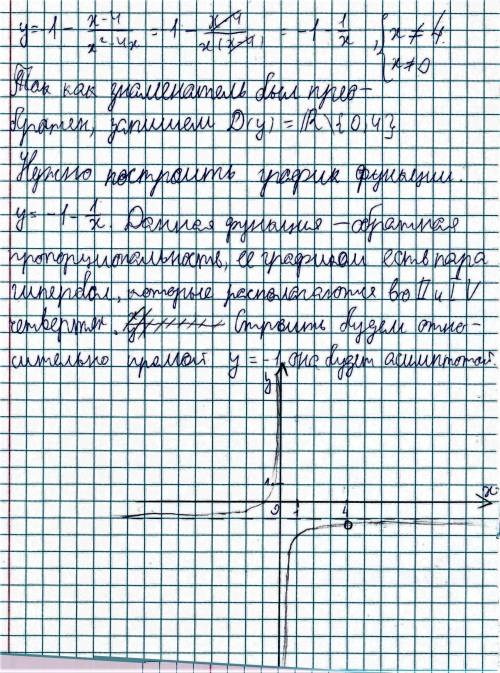 y = 1 - (x-4)/(x²-4x) = 1 - (x-4)/(x(x-4)) = -1 - 1/x , { x ≠ 4. x ≠ 0
Так как знаменатель был прео-
бражен, запишем D(y) = R\{0,4}
Нужно построить график функции.
y = -1 - 1/x. Данная функция – обратная
пропорциональность, её графиком есть пара
гипербол, которые располагаются во II и IV
четвертях. Строить будем отно-
сительно прямой y = -1, она будет асимптотой.
y
1
x
0 1 4